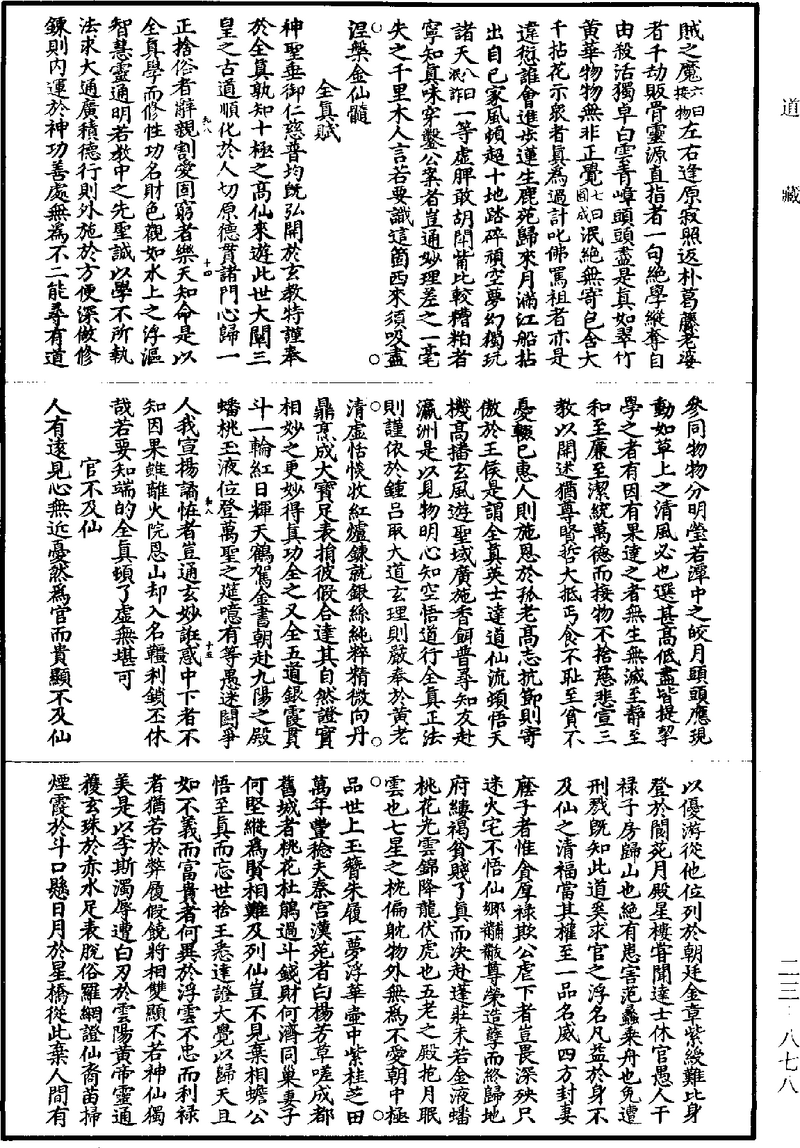 道藏
賊之魔六曰接物左右逢原寂照返朴葛藤老婆
者千劫販骨靈源直指者一句絕學縱奪自
由殺活獨卓白雲青嶂頭頭盡是真如翠竹
黃華物物無非正覺七曰圓成泯絕無寄包含大
千拈花示衆者真為過計叱佛罵祖者亦是
違愆誰會進步蓮生鹿苑歸來月滿江船拈
出自己家風頓超十地踏碎頑空夢幻獨玩
諸天八曰一等虛脾敢胡開觜比較糟粕者
寧知真味穿鑿公案者豈通妙理差之一毫
失之千里木人言若要識這箇西來須吸盡
涅槃金仙髓
全真賦
神聖垂御仁慈普均旣弘開於玄教特謹奉
於全真孰知十極之高仙來遊此世大闡三
皇之古道順化於人切原德貫諸門心歸一
正捨俗者辭親割愛固窮者樂天知命是以
全真學而修性功名財色觀如水上之浮漚
智慧靈通明若教中之先聖誠以學不所執
法求大通廣積德行則外施於方便深做修
鍊則內運於神功善處無為不二能尋有道
參同物物分明瑩若潭中之皎月頭頭應現
動如草上之清風必也選甚高低盡皆提挈
學之者有因有果達之者無生無滅至靜至
和至廉至潔統萬德而接物不捨慈悲宣三
教以開述猶尊賢哲大抵丐食不耻至貧不
憂輟已惠人則施恩於孤老高志抗節則寄
傲於王侯是謂全真英士達道仙流頓悟天
機高播玄風遊聖域廣施香餌普尋知友赴
瀛洲是以見物明心知空悟道行全真正法
則謹依於鍾呂取大道玄理則嚴奉於黃老
清虛恬惔收紅爐鍊就銀絲純粹精微向丹
鼎烹成大寶足表掄彼假合達其自然證實
相妙之更妙得真功全之又全五道銀霞貫
斗一輪紅日輝天鶴駕金書朝赴九陽之殿
蟠桃玉液位登萬聖之筵噫有等愚迷鬪爭
人我宣揚譎恠者豈通玄妙誑惑中下者不
知因果雖離火院恩山却入名韁利鎖丕休
哉若要知端的全真頓了虛無堪可
官不及仙
人有遠見心無近憂然為官而貴顯不及仙
以優游從他位列於朝廷金章紫綬難比身
登於閬苑月殿星樓甞聞達士休官愚人干
祿子房歸山也絕有患害范蠡乘舟也免遭
刑戮旣知此道奚求官之浮名凡益於身不
及仙之清福當其權至一品名威四方封妻
廕子者惟貪厚祿欺公虐下者豈畏深殃只
迷火宅不悟仙鄉黼黻尊榮造孽而終歸地
府縷褐貧賤了真而決赴蓬莊未若金液蟠
桃花光雲錦降龍伏虎也五老之殿抱月眠
雲也七星之枕偏躭物外無為不愛朝中極
品世上玉簪朱履一夢浮華壷中紫桂芝田
萬年豐稔夫秦宮漢苑者白楊芳草嗟成都
舊城者桃花杜鵑過斗錢財何濟同巢妻子
何堅縱為賢相難及列仙豈不見葉相蟾公
悟至真而忘世捨王悉達證大覺以歸天且
如不義而富貴者何異於浮雲不忠而利祿
者猶若於弊屨假饒將相雙顯不若神仙獨
美是以李斯濁辱遭白刃於雲陽黃帝靈通
獲玄珠於赤水足表脫俗羅網證仙裔苗掃
煙霞於斗口懸日月於星橋從此棄人間有
二三·八七八